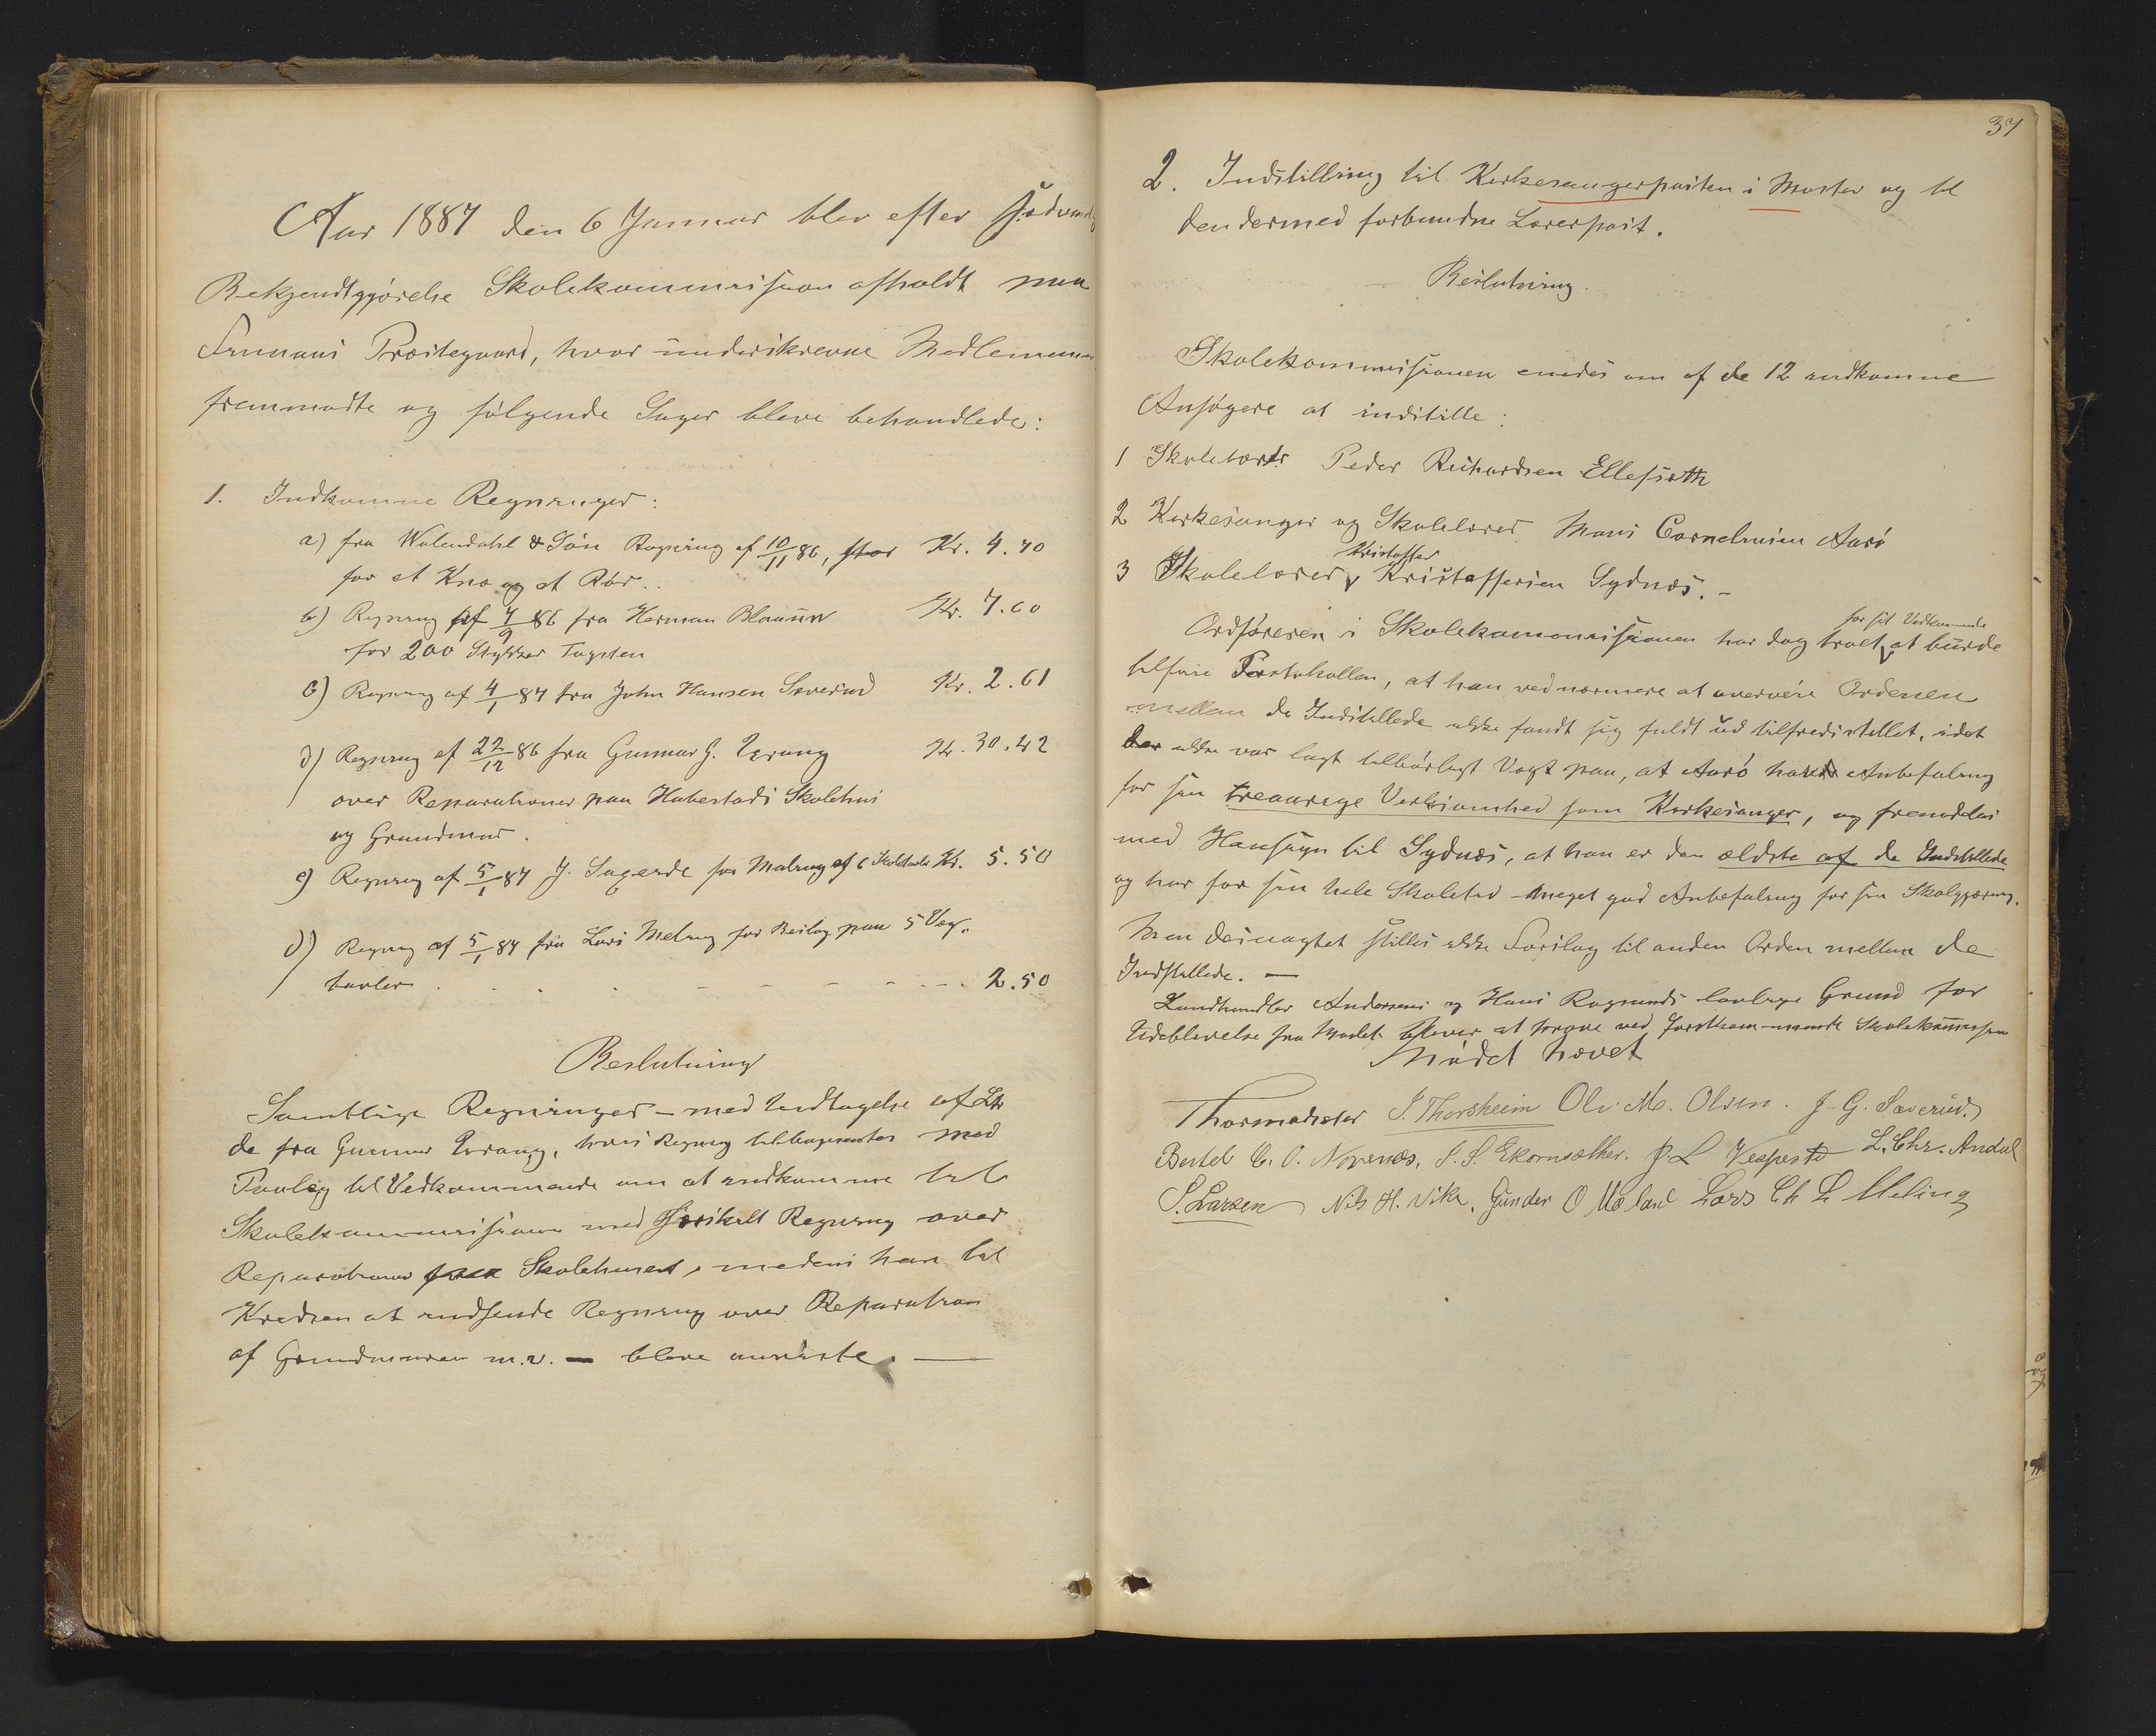 Aar 1887 den 6 Januar blev efter sædvanlig
Bekjendtgjörelse Skolekommission afholdt paa
Finnaas Præstegaard, hvor underskrevne Medlemmer
fremmødte og følgende Sager bleve behandlede:
1. Indkomne Regninger:
a) fra Walendahl & Sön Regning af 10/11 86, stor Kr. 4.40
for et Knæ og et Rör.
b) Regning af 7/9 86 fra Herman Blauuw Kr. 7.60
for 200 Stykker Tagsten
c) Regning af 4/1 87 fra John Hansen Sæverud Kr. 2.61
d) Regning af 22/12 86 fra Gunnar G. Kr. 30.42
over Reparationer paa Habestads Skolehus
og Grundmur.
e) Regning af 5/1 87 J. Sagerde for Maling af 6 Skoletavler Kr. 5.50
f) Regning af 5/1 87 fra Lars Meling for Beslag paa 5 Væg-
tavler 2.50
Beslutning
Samtlige Regninger – med Undtagelse af Litr
d fra Gunnar, hvis Regning tilbagesendes med
Paalæg til Vedkommende om at indkomme til
Skolekommissionen med særskilt Regning over
Reparationer paa Skolehuset, medens han til
Kredsen at indsende Regning over Reparation
af Grundmuren m.v. – bleve anviste. —
37
2. Indstilling til Kirkesangerposten i Moster og til
den dermed forbundne Lærerpost.
Beslutning.
Skolekommissionen enedes om af de 12 indkomne
Ansögere at indstille:
1 Skolelærer Peder Richardsen Ellefsæth
2 Kirkesanger og Skolelærer Mons Corneliusen Aarö
3 Skolelærer Kristoffer Kristoffersen Sydnæs. –
Ordføreren i Skolekommissionen har dog troet for sit Vedkommende at burde
tilføie Protokollen, at han ved nærmere at overveie Ordenen
mellem de Indstillede ikke fandt sig fuldt ud tilfredsstillet, idet
der ikke var lagt tilbörligt Vægt paa, at Aarö havde Anbefaling
for sin treaarige Virksomhed som Kirkesanger, og fremdeles
med Hensyn til Sydnæs, at han er den ældste af de Indstillede
og har for sin hele Skoletid meget god Anbefaling for sin Skolegjerning.
Men desuagtet stilles ikke Forslag til anden Orden mellem de
Indstillede. —
Landhandler Andersens og Hans Rognunds lovlige Grund for
Udeblivelse fra Mødet bliver at prøve ved førstkommende Skolekommission
Mödet hævet
Thormodsæter J. Thorsheim Ole M. Olsen. J. G. Sæverud.
Bertel C. O. Norenæs, S. S. Ekornsæther. P. L Vespestad L. Chr. Andal
S. Larsen Nils H. Vika, Gunder O Mæland Lars Ch L Meling